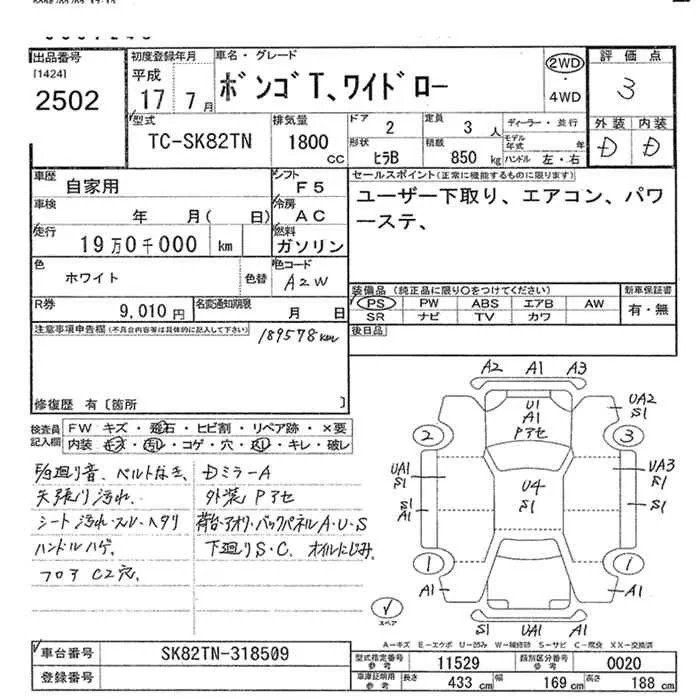 出品番号
[1424]
2502
初度登録年月
平成
17 7月
車名・グレード
ボンゴT、ワイドロー
2WD
・
4WD
評価点
3
型式
TC-SK82TN
排気量
1800
cc
ドア
2
定員
3 人
形状
ヒラB
積載
850 kg
ディーラー・並行
モデル年式 年
ハンドル 左・右
外装 内装
D D
車歴
自家用
シフト
F5
セールスポイント(正常に機能するものに限ります)
ユーザー下取り、エアコン、パワ
ーステ、
車検
年 月( 日)
冷房
AC
走行
19万0千000 km
燃料
ガソリン
色
ホワイト
色替
色コード
A2W
装備品 (純正品に限り○をつけてください)
PS PW ABS エアB AW
SR ナビ TV カワ
新車保証書
有・無
R券
9,010 円
名変通知期限
月 日
後日品
注意事項申告欄(不具合内容等は具体的に記入して下さい)
189578km
修復歴 有〔箇所 〕
検査員
記入欄
FW キズ・飛石・ヒビ割・リペア跡・×要
内装 キズ・汚れ・コゲ・穴・スレ・キレ・破レ
E/g廻り音、ベルトなき、
天張り汚れ、
シート汚れ・スレ・ヘタリ
ハンドルハゲ、
フロアC2穴、
Dミラー A
外装Pアセ
荷台・アオリ・バックパネルA・U・S
下廻りS・C、オイルにじみ、
A2 A1 A3
U1
A1
Pアセ
UA2
S1
2
3
UA1
S1
U4
S1
UA3
S1
S1
A1
S1
1
1
A1
A1
S1 UA1 A1
スペア
A-キズ E-エクボ U-凹み W-補修跡 S-サビ C-腐食 XX-交換済
車台番号
SK82TN-318509
登録番号
型式指定番号
参考
11529
類別区分番号
参考
0020
車庫証明用
参考
長さ 433 cm
幅 169 cm
高さ 188 cm